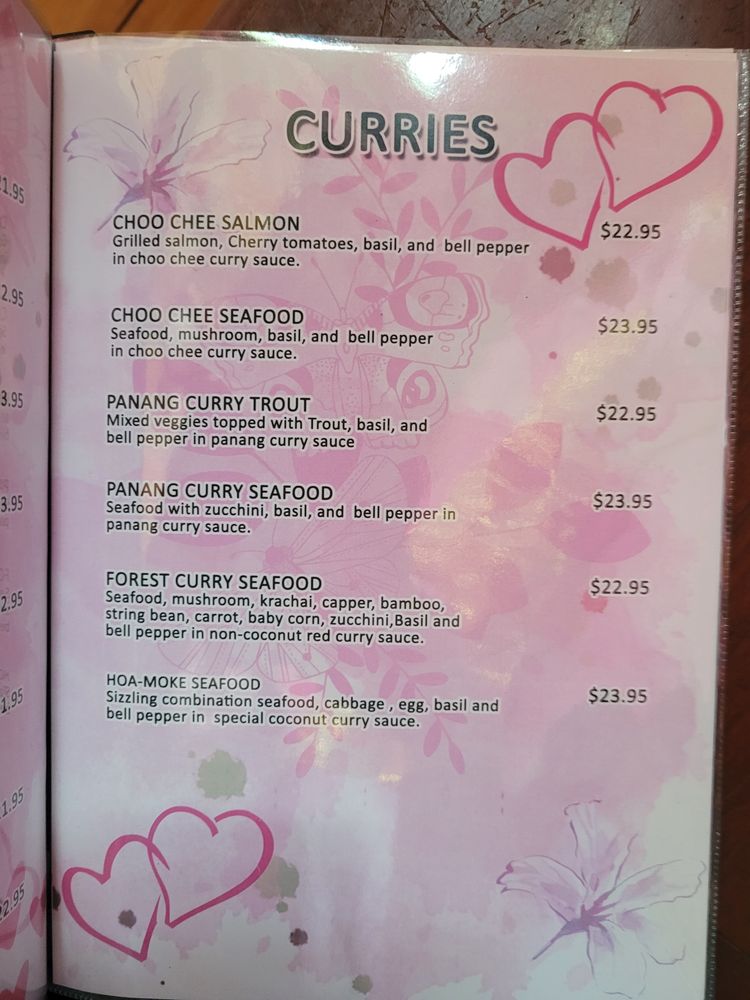 CURRIES
CHOO CHEE SALMON
$22.95
Grilled salmon, Cherry tomatoes, basil, and bell pepper
in choo chee curry sauce.
CHOO CHEE SEAFOOD
$23.95
Seafood, mushroom, basil, and bell pepper
in choo chee curry sauce.
PANANG CURRY TROUT
$22.95
Mixed veggies topped with Trout, basil, and
bell pepper in panang curry sauce
PANANG CURRY SEAFOOD
$23.95
Seafood with zucchini, basil, and bell pepper in
panang curry sauce.
FOREST CURRY SEAFOOD
$22.95
Seafood, mushroom, krachai, capper, bamboo,
string bean, carrot, baby corn, zucchini,Basil and
bell pepper in non-coconut red curry sauce.
HOA-MOKE SEAFOOD
$23.95
Sizzling combination seafood, cabbage , egg, basil and
bell pepper in special coconut curry sauce.